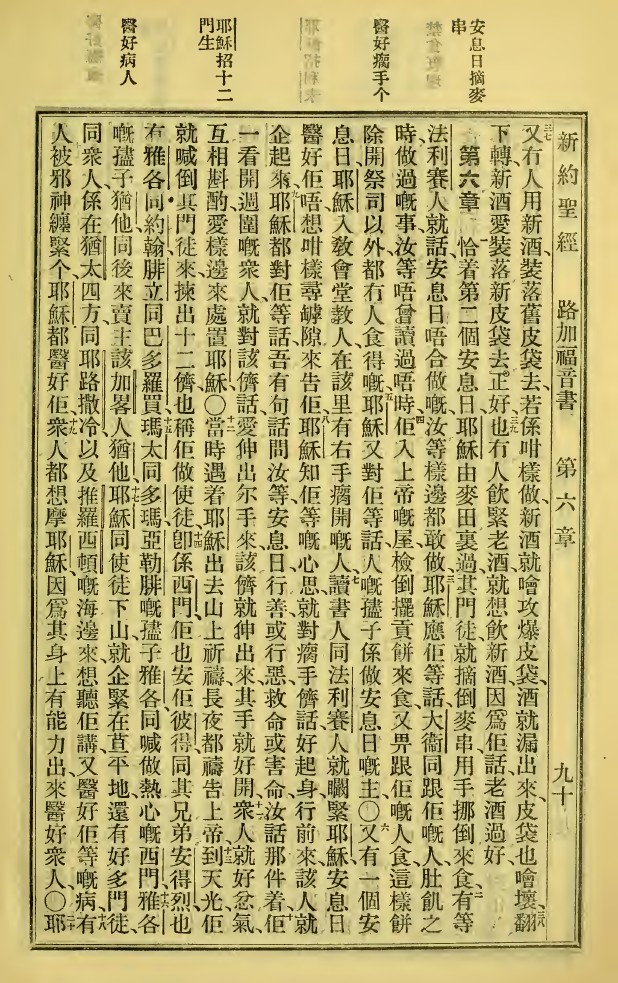 安息日摘麥
串
醫好㾪手个
耶穌招十二
門生
醫好病人
新約聖經 路加福音書 第六章 九十
又冇人用新酒裝落舊皮袋去、若係咁樣做、新酒就噲攻爆皮袋、酒就漏出來、皮袋也噲壞、翻
下轉新酒愛裝落新皮袋去、正好也、冇人飲緊老酒、就想飲新酒、因爲佢話老酒過好、
第六章 恰着第二個安息日、耶穌由麥田裏過、其門徒就摘倒麥串用手挪倒來食、有等
法利賽人就話、安息日唔合做嘅、汝等樣邊都敢做、耶穌應佢等話、大衞同跟佢嘅人肚飢之
時做過嘅事、汝等唔曾讀過唔、時佢入上帝嘅屋、檢倒擺貢餅來食、又畀跟佢嘅人食、這樣餅
除開祭司以外、都冇人食得嘅、耶穌又對佢等話、人嘅孻子係做安息日嘅主〇又有一個安
息日、耶穌入敎會堂敎人、在該里有右手㾪開嘅人、讀書人同法利賽人、就矙緊耶穌、安息日
醫好佢唔、想咁樣尋罅隙來告佢、耶穌知佢等嘅心思、就對㾪手儕話、好起身行前來、該人就
企起來、耶穌都對佢等話、吾有句話問汝等、安息日行善或行惡、救命或害命、汝話那件着、佢
一看開週圍嘅衆人、就對該儕話、愛伸出尔手來、該儕就伸出來、其手就好開、衆人就好忿氣、
互相斟酌、愛樣邊來處置耶穌、〇當時遇着耶穌出去山上祈禱、長夜都禱告上帝、到天光佢
就喊倒其門徒來、揀出十二儕也、稱佢做使徒、卽係西門、佢也安佢彼得、同其兄弟安得烈也
有雅各同約翰、腓立同巴多羅買、瑪太同多瑪、亞勒腓嘅孻子雅各、同喊做熱心嘅西門、雅各
嘅孻子猶他、同後來賣主該加畧人猶他、耶穌同使徒下山、就企緊在苴平地、還有好多門徒、
同衆人、係在猶太四方、同耶路撒冷、以及推羅西頓嘅海邊來、想聽佢講、又醫好佢等嘅病、有
人被邪神纏緊个、耶穌都醫好佢、衆人都想摩耶穌、因爲其身上有能力出來、醫好衆人、〇耶